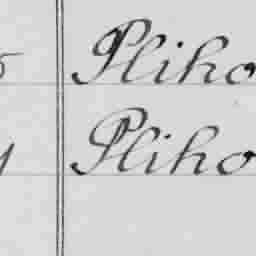 Pliho
Pliho